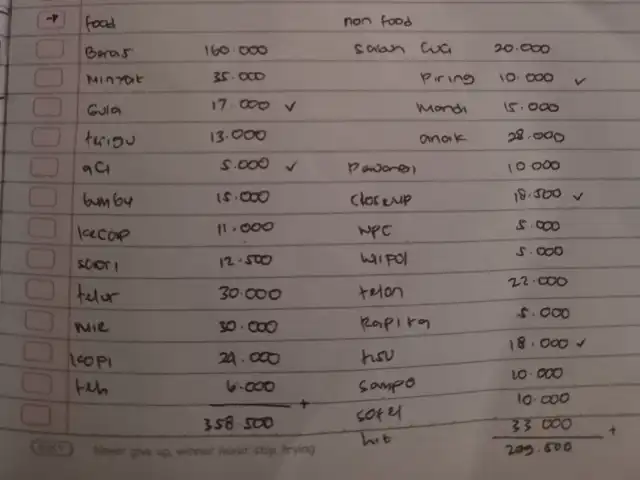 food
Beras 160.000
Minyak 35.000
Gula 17.000 ✓
terigu 13.000
aci 5.000 ✓
bumbu 15.000
kecap 11.000
saori 12.500
telur 30.000
mie 30.000
kopi 24.000
teh 6.000
+
358.500
non food
Sabun Cuci 20.000
Piring 10.000 ✓
Mandi 15.000
anak 28.000
Pewangi 10.000
closeup 18.500 ✓
WPC 5.000
Wipol 5.000
telon 22.000
Rapika 5.000
tisu 18.000 ✓
sampo 10.000
sofel 10.000
hit 33.000
+
209.500
Never give up, winner never stop trying